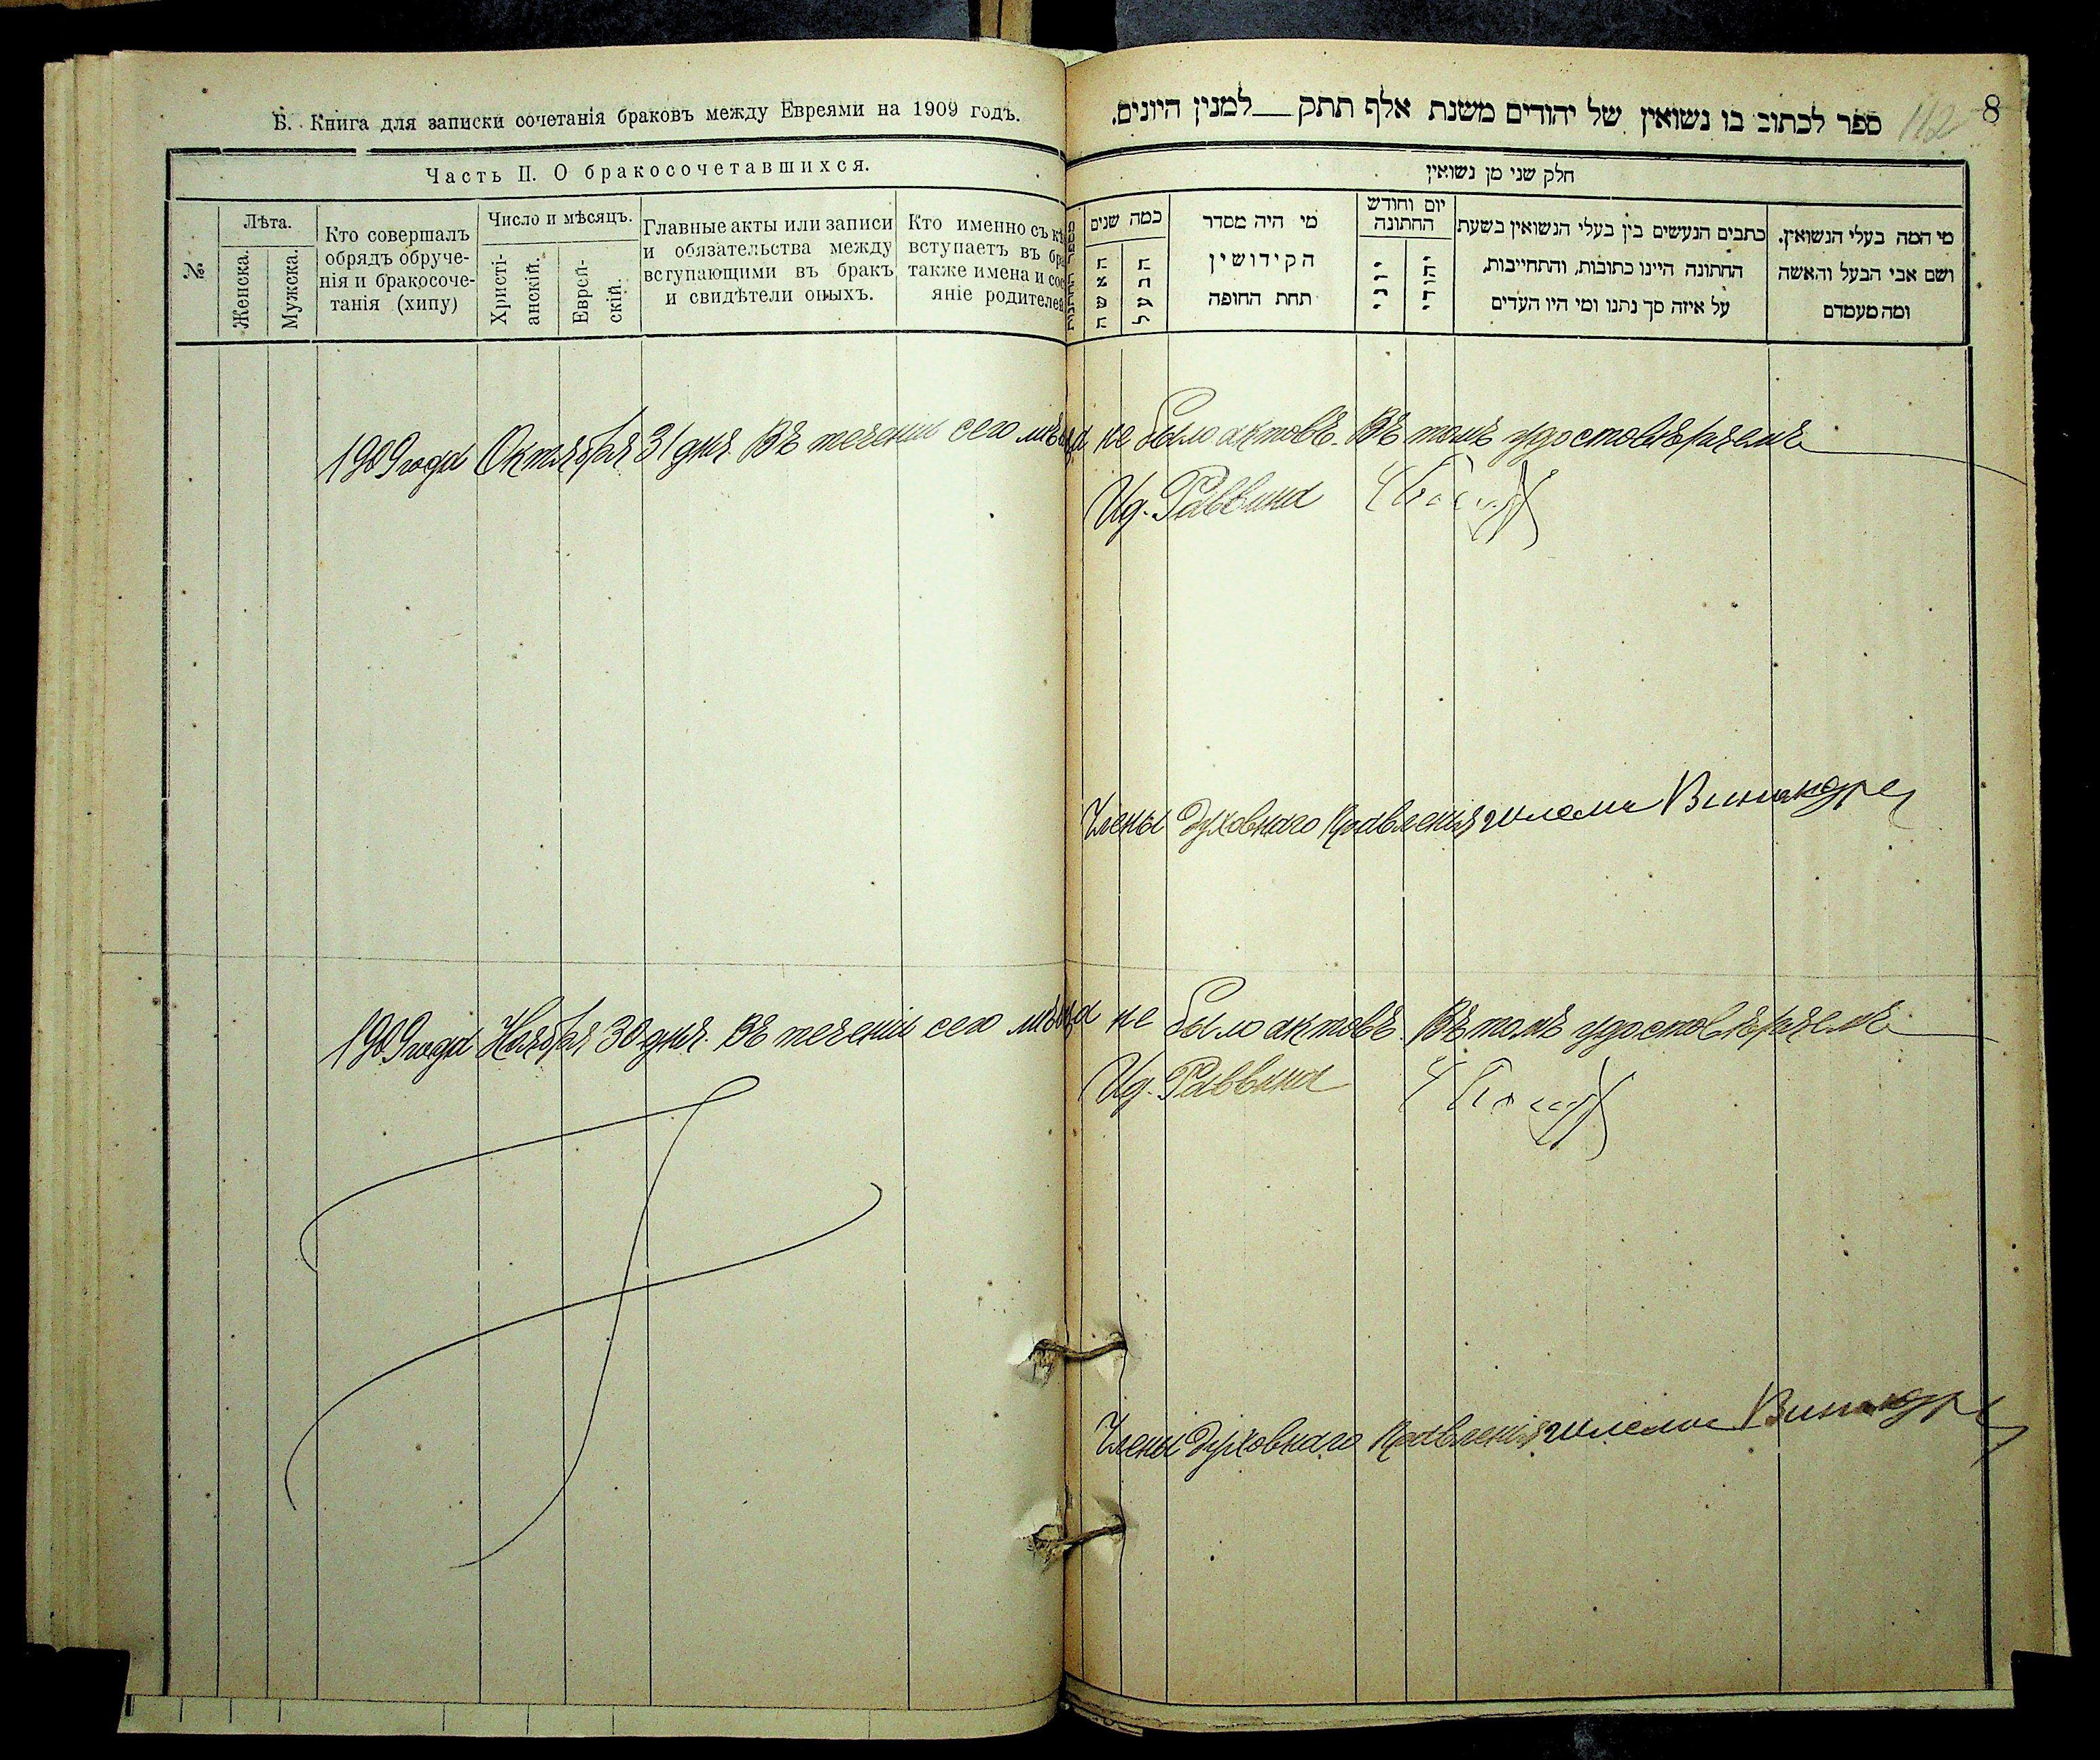 Б. Книга для записки сочетанія браковъ между Евреями на 1909 годъ.
Часть II. О бракосочетавшихся.
№
Лѣта.
Женска.
Мужска.
Кто совершалъ
обрядъ обруче-
нія и бракосоче-
танія (хипу)
Число и мѣсяцъ.
Христі-
анскій.
Еврей-
скій.
Главные акты или записи
и обязательства между
вступающими въ бракъ
и свидѣтели оныхъ.
Кто именно съ
вступаетъ въ
также имена и
яніе родителей
ספר לכתוב בו נשואין של יהודים משנת אלף תתק__למנין היונים.
112
8
חלק שני מן נשואין
מספר החתונות
כמה שנים
האשה
הבעל
מי היה מסדר
הקידושין
תחת החופה
יום וחודש
החתונה
יוני
יהודי
כתבים הנעשים בין בעלי הנשואין בשעת
החתונה היינו כתובות, והתחייבות,
על איזה סך נתנו ומי היו העדים
מי המה בעלי הנשואין.
ושם אבי הבעל והאשה
ומה מעמדם
1909 года Октября 31 дня. Въ теченіи сего мѣсяца не было актовъ. Въ томъ удостовѣряемъ
Ид. Раввина
Члены Духовнаго Правленія Шлема
1909 года Ноября 30 дня. Въ теченіи сего мѣсяца не было актовъ. Въ томъ удостовѣряемъ
Ид. Раввина
Члены Духовнаго Правленія Шлема